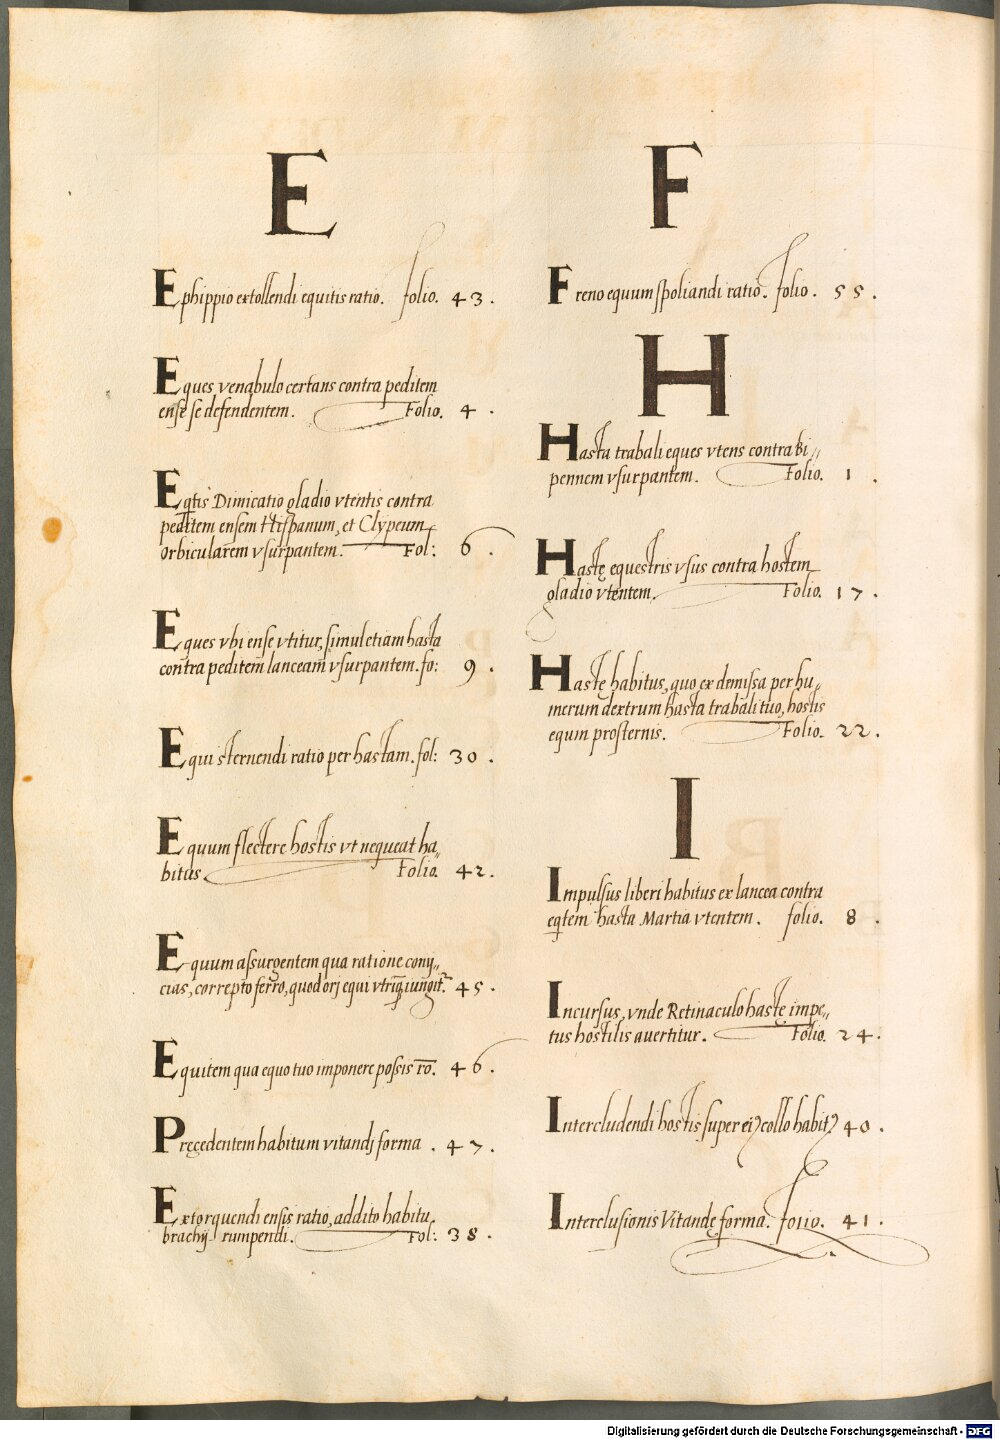 E
Ephippio extollendi equitis ratio. folio. 43.
Eques venabulo certans contra peditem
ense se defendentem. Folio. 4.
Eqtis Dimicatio gladio vtentis contra
peditem ensem Hispanum, et Clypeum
orbicularem vsurpantem. Fol: 6.
Eques vbi ense vtitur, simul etiam hasta
contra peditem lanceam vsurpantem. fo: 9.
Equi sternendi ratio per hastam. fol: 30.
Equum flectere hostis vt nequeat ha„
bitus. Folio. 42.
Equum assurgentem qua ratione conij„
cias, correpto ferro, quod orj equi vtrinq iungit.^r 45.
Equitem qua equo tuo imponere possis rō. 46.
Pręcedentem habitum vitandj forma. 47.
Extorquendi ensis ratio, addito habitu
brachij rumpendi. Fol: 38.
F
Freno equum spoliandi ratio. folio. 55.
H
Hasta trabali eques vtens contra Bi„
pennem vsurpantem. Folio. 1.
Hastę equestris vsus contra hostem
gladio vtentem. Folio. 17.
Hastę habitus, quo ex demissa per hu„
merum dextrum hasta trabali tuo, hostis
equm prosternis. Folio. 22.
I
Impulsus liberi habitus ex lancea contra
eqtem hasta Martia vtentem. folio. 8.
Incursus, vnde Retinaculo hastę impe„
tus hostilis auertitur. Folio. 24.
Intercludendi hostis super eiꝰ collo habitꝰ 40.
Interclusionis Vitandę forma. folio. 41.
Digitalisierung gefördert durch die Deutsche Forschungsgemeinschaft - DFG